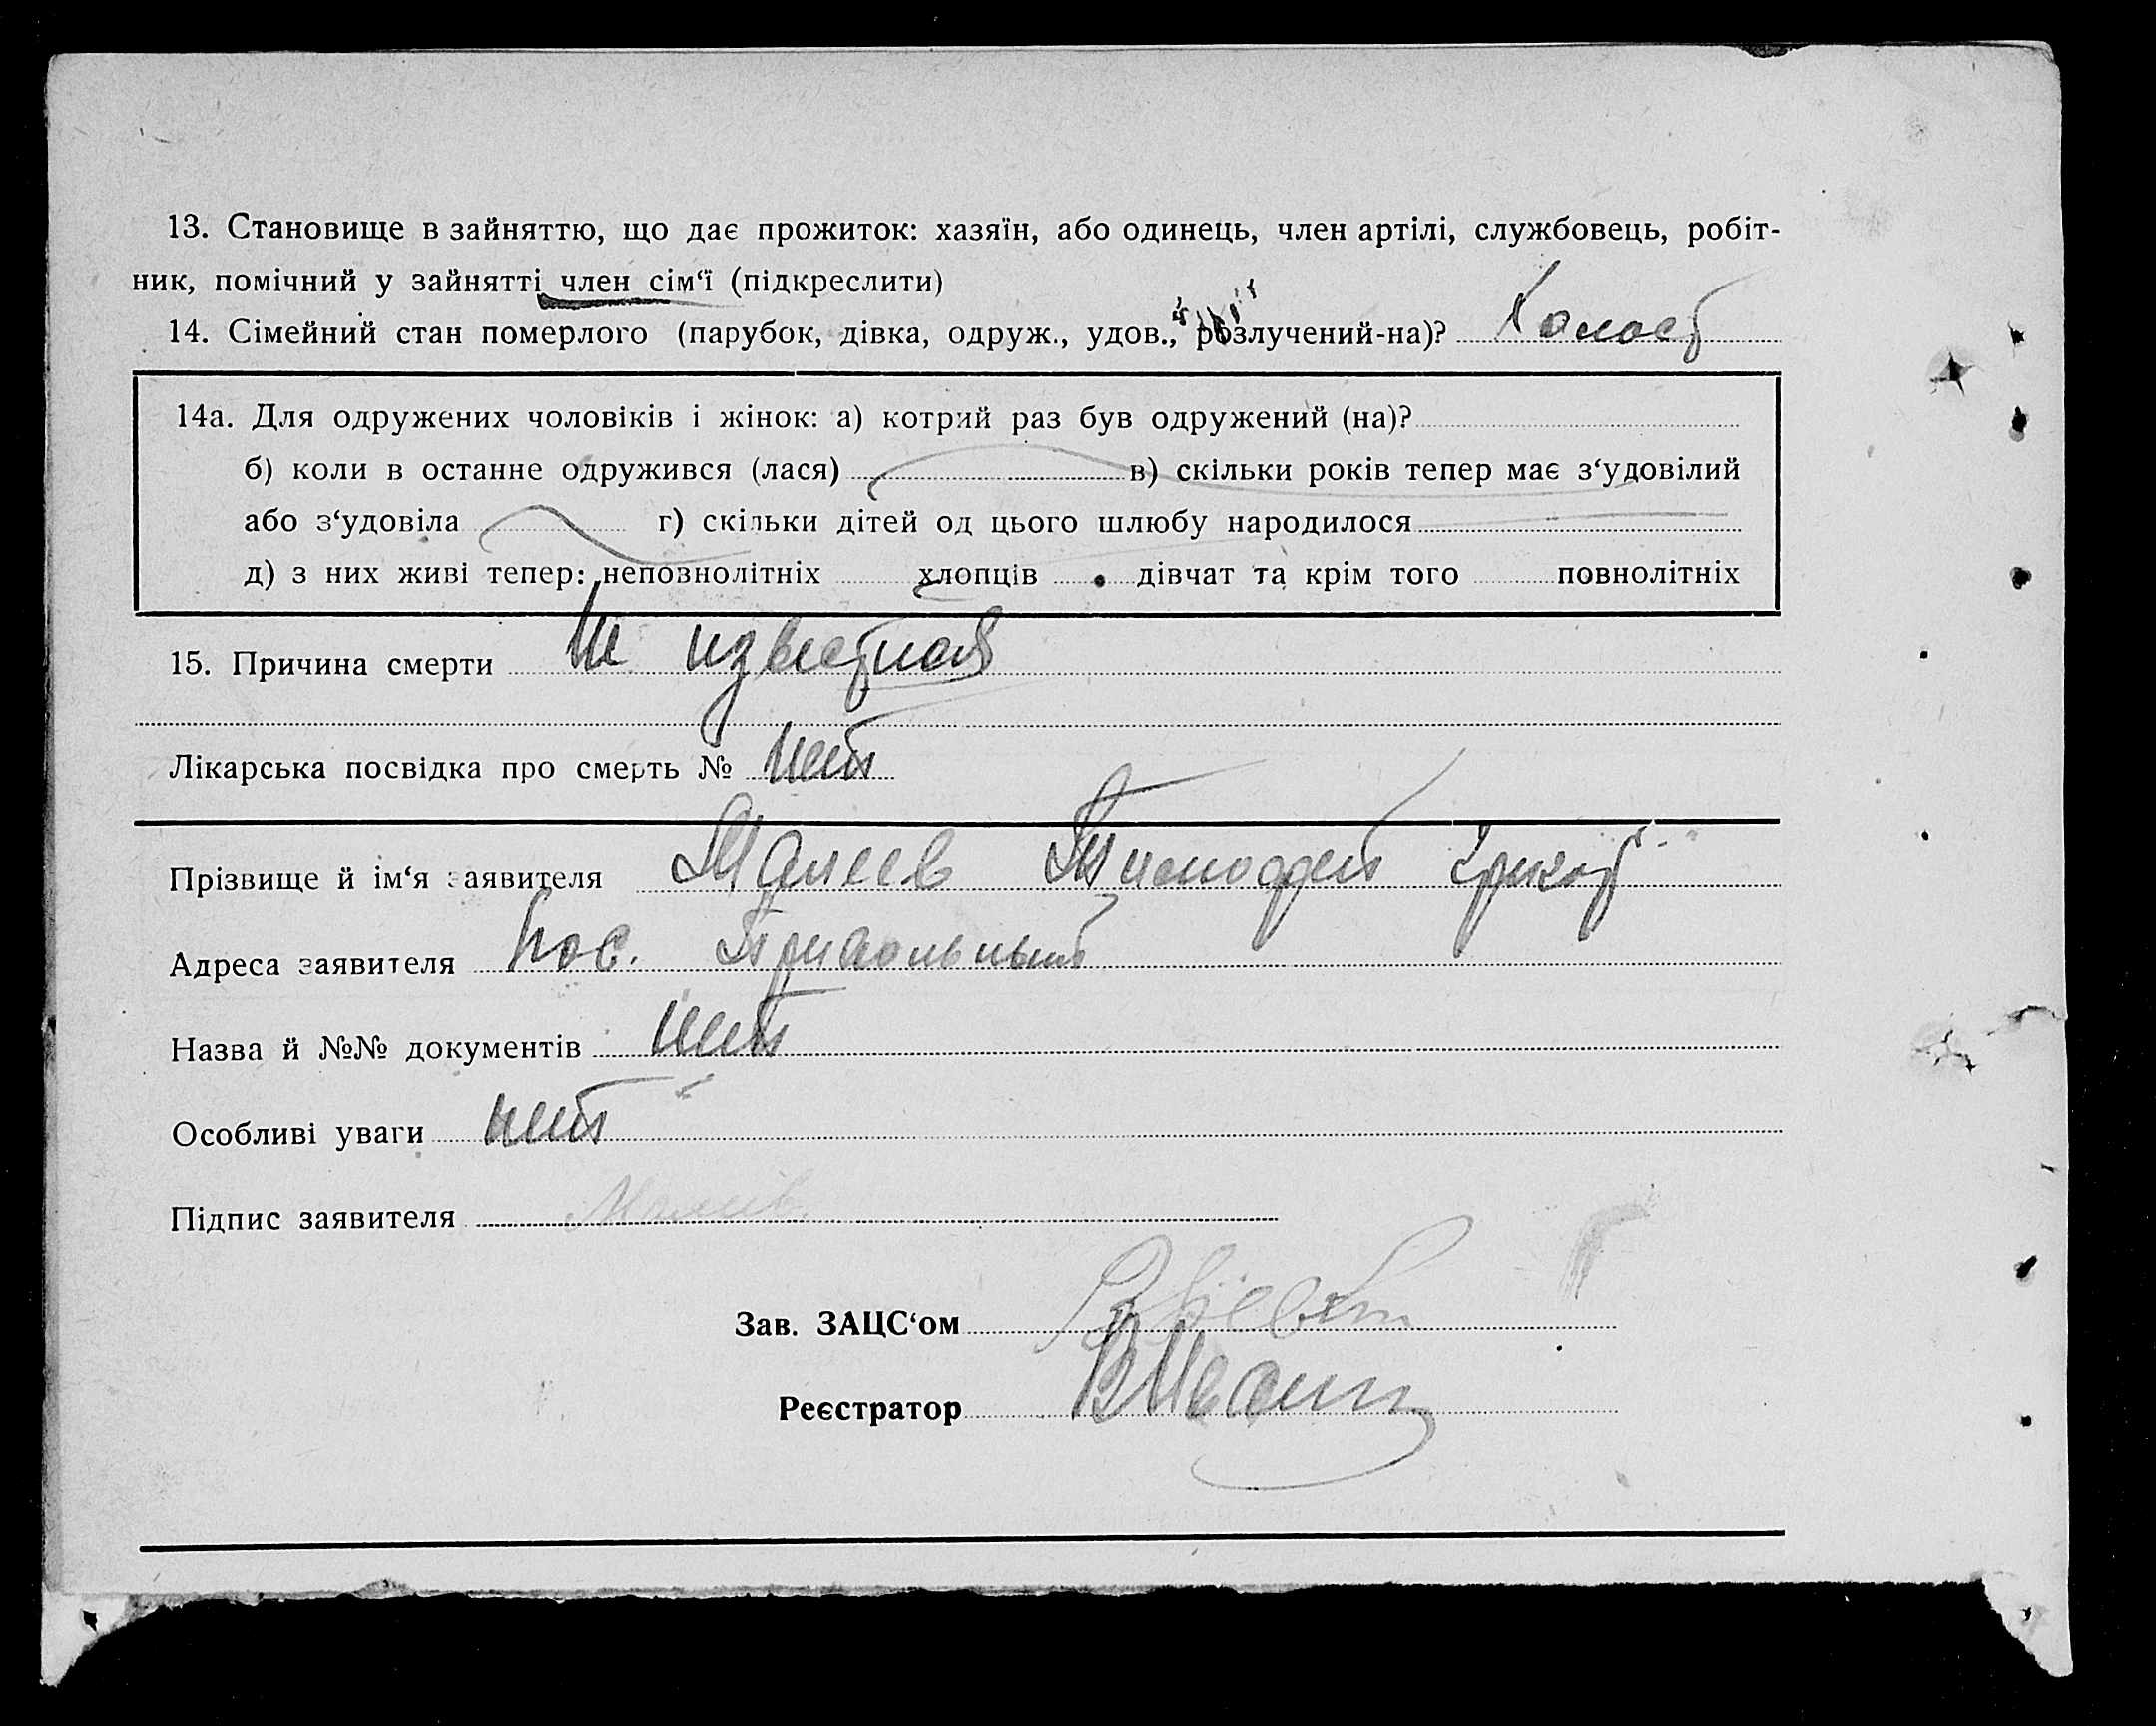 13. Становище в зайняттю, що дає прожиток: хазяїн, або одинець, член артілі, службовець, робіт-
ник, помічний у зайнятті член сім‘ї (підкреслити)
14. Сімейний стан померлого (парубок, дівка, одруж., удов., розлучений-на)? Холост
14а. Для одружених чоловіків і жінок: а) котрий раз був одружений (на)?
б) коли в останне одружився (лася) в) скільки років тепер має з‘удовілий
або з‘удовіла г) скільки дітей од цього шлюбу народилося
д) з них живі тепер: неповнолітніх хлопців дівчат та крім того повнолітніх
15. Причина смерти Не известная
Лікарська посвідка про смерть № нет
Прізвище й ім‘я заявителя Малеев Тимофей
Адреса заявителя пос. Привольный
Назва й №№ документів нет
Особливі уваги нет
Підпис заявителя
Зав. ЗАЦС‘ом
Реєстратор